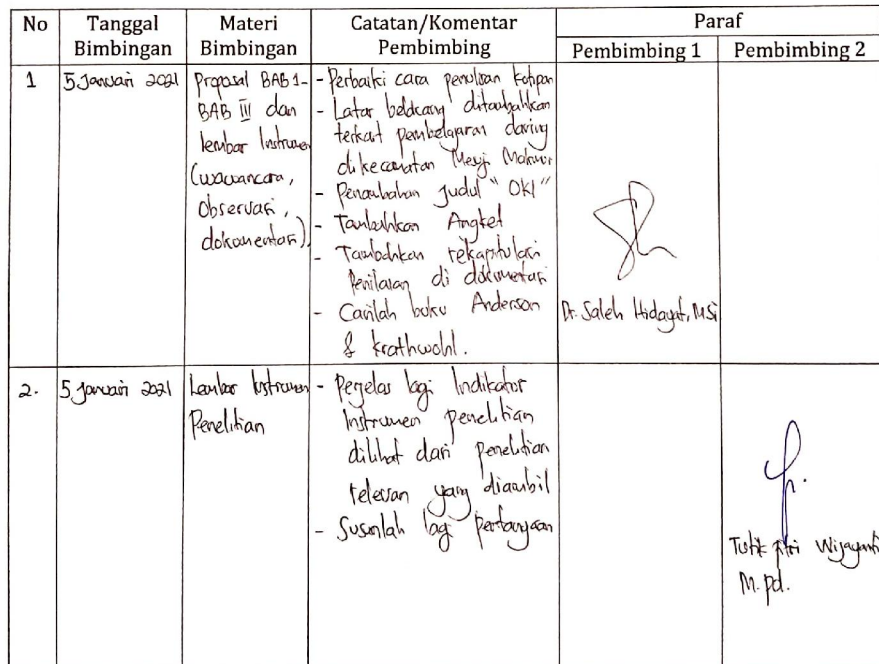 No Tanggal Bimbingan Materi Bimbingan Catatan/Komentar Pembimbing Paraf
Pembimbing 1 Pembimbing 2
1 5 Januari 2021
Proposal BAB 1-
BAB III dan
lembar Instrumen
(wawancara,
Observasi,
dokumentasi).
- Perbaiki cara penulisan kutipan
- Latar belakang ditambahkan
terkait pembelajaran daring
dikecamatan Mesuji Makmur
- Penambahan judul "OKI"
- Tambahkan Angket
- Tambahkan rekapitulasi
Penilaian di dokumentasi
- Carilah buku Anderson
& krathwohl.
Dr. Saleh Hidayat, MSi
2. 5 Januari 2021
Lembar Instrumen
Penelitian
- Perjelas lagi Indikator
Instrumen penelitian
dilihat dari penelitian
relevan yang diambil
- Susunlah lagi pertanyaan
Tutik Fitri Wijayanti
M.pd.